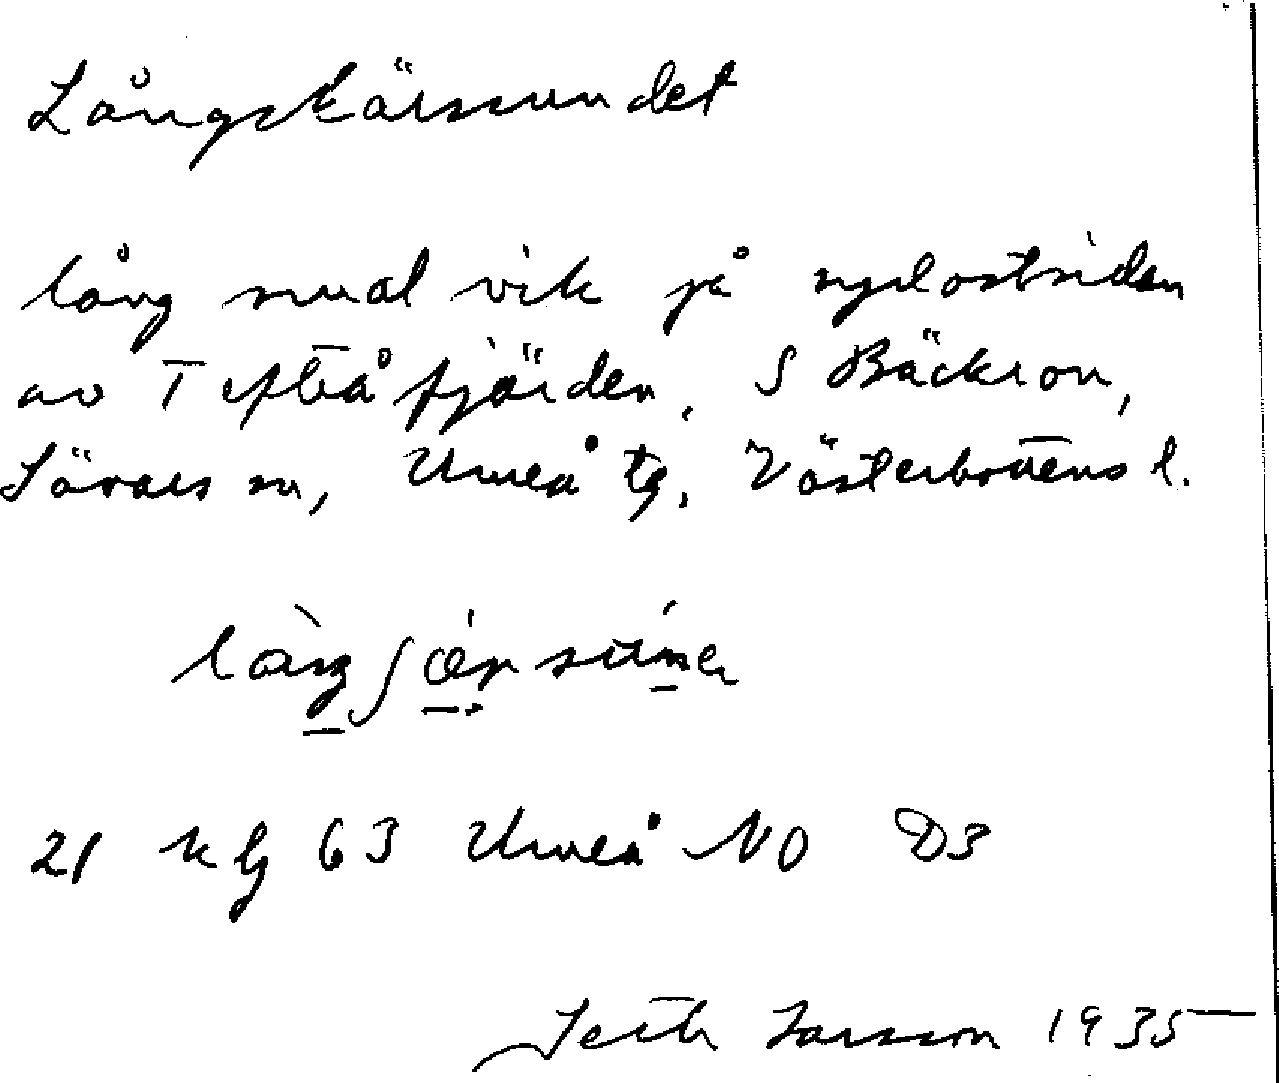 Långskärssundet
lång smal vik på sydostsidan
av Tefteåfjärden, S Bäckron,
Sävars sn, Umeå tg, Västerbottens l.
21 klj 63 Umeå NO D3
Seth Larsson 1935